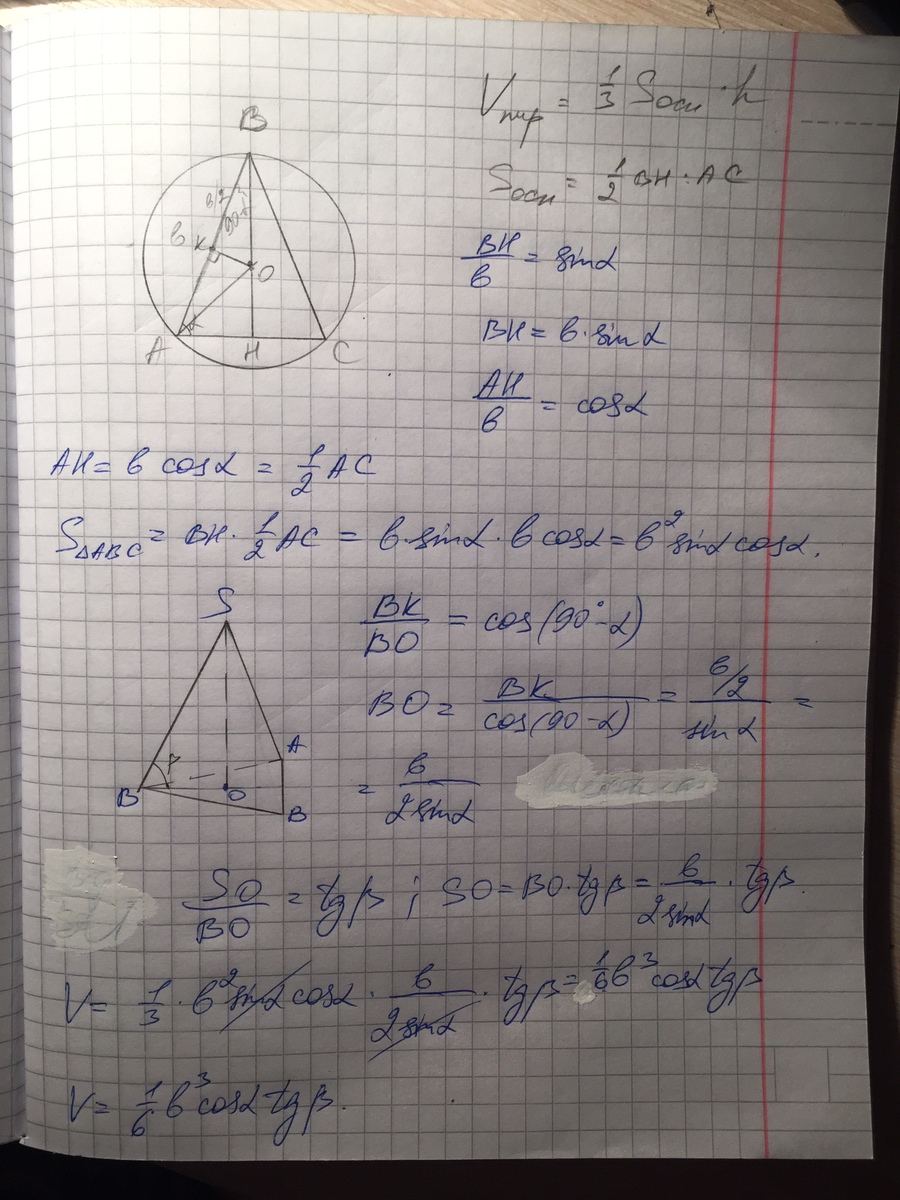 Vпир = 1/3 Sосн · h
Sосн = 1/2 BH · AC
B
в
в/2
90-α
K
O
α
A
H
C
BH/в = sinα
BH = в · sinα
AH/в = cosα
AH = в cosα = 1/2 AC
S△ABC = BH · 1/2 AC = в · sinα · в cosα = в² sinα cosα.
S
β
B
O
A
B
BK/BO = cos(90° - α)
BO = BK/cos(90-α) = в/2 / sinα =
= в/2sinα
SO/BO = tgβ ; SO = BO · tgβ = в/2sinα · tgβ.
V = 1/3 · в² sinα cosα · в/2sinα · tgβ = 1/6 в³ cosα tgβ
V = 1/6 в³ cosα tgβ.